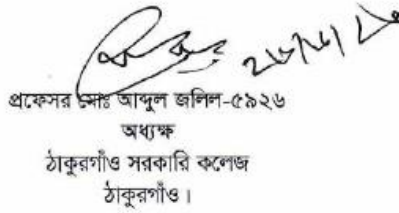 প্রফেসর মোঃ আব্দুল জলিল-৫৯২৬
অধ্যক্ষ
ঠাকুরগাঁও সরকারি কলেজ
ঠাকুরগাঁও।